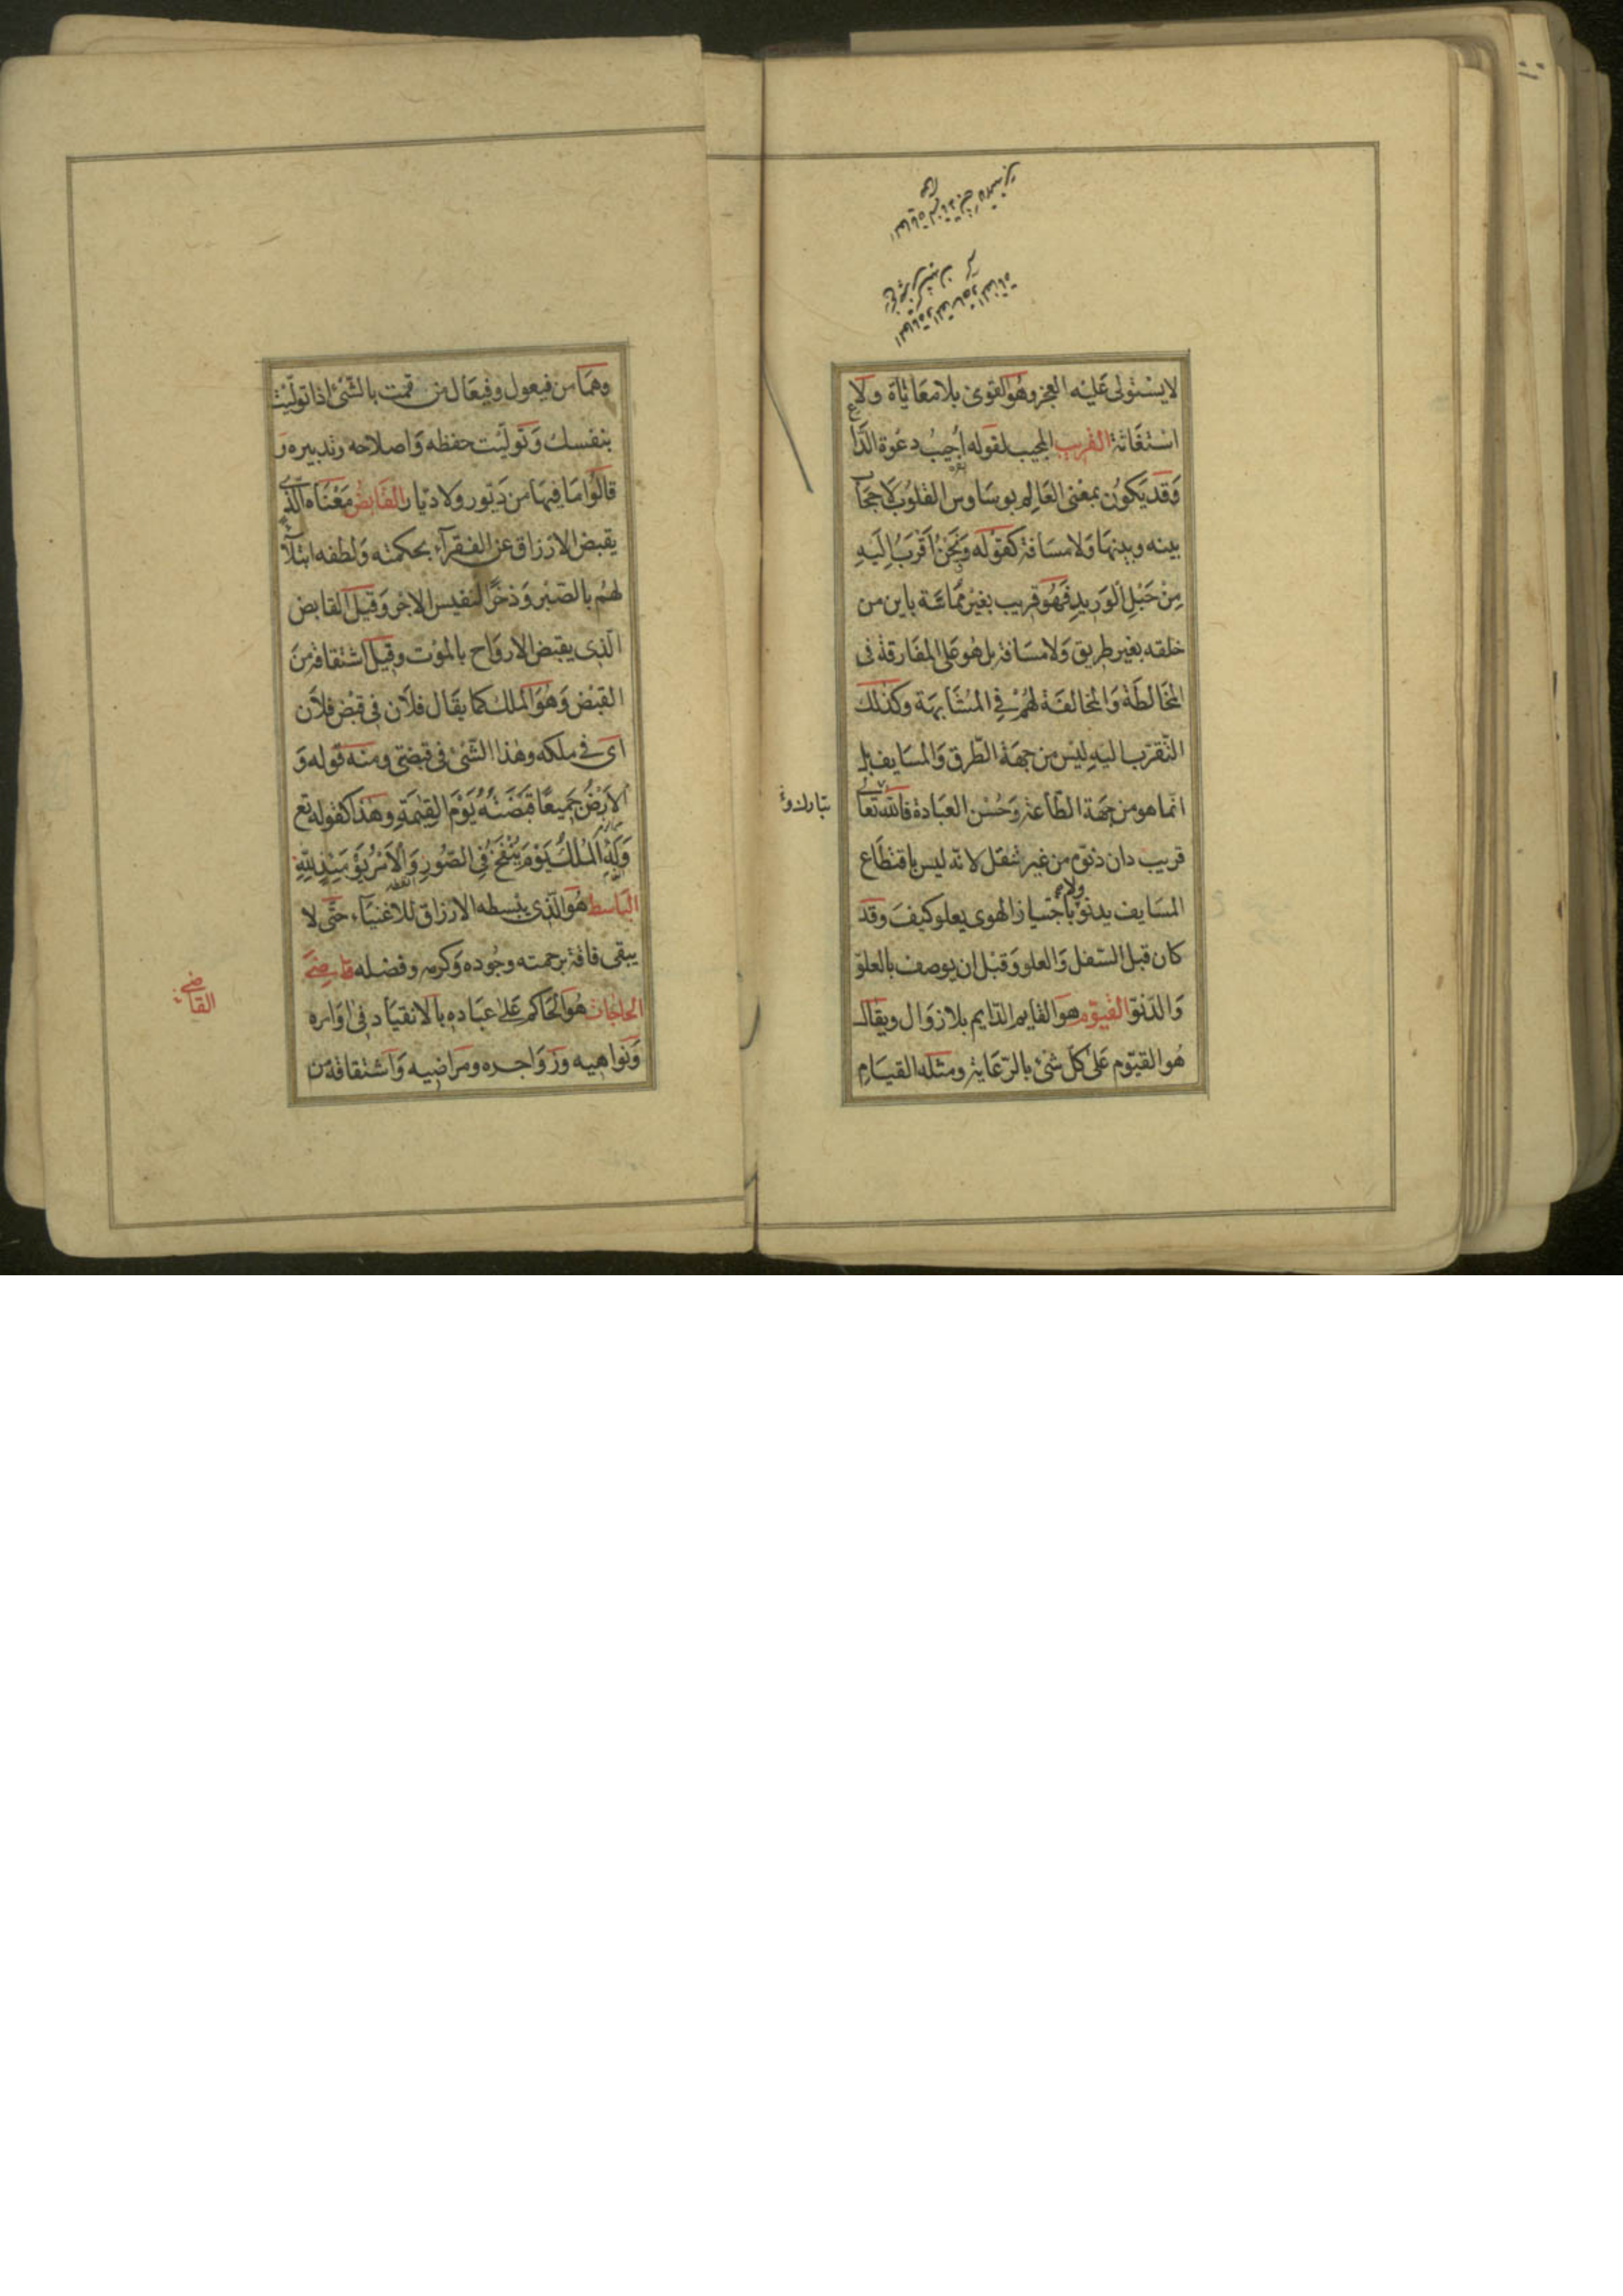 لا يستولى عليه العجز وهو القوى بلا معاناة ولا
استغاثة القريب المجيب لقوله أجيب دعوة الداع
وقد يكون بمعنى العالم بوساوس القلوب لا حجاب
بينه وبينها ولا مسافة كقوله ونحن أقرب إليه
من حبل الوريد فهو قريب بغير مماسة باين من
خلقه بغير طريق ولا مسافة بل هو على المفارقة فى
المخالطة والمخالفة لهم في المشابهة وكذلك
التقرب اليه ليس من جهة الطرق والمسايف بل
انما هو من جهة الطاعة وحسن العبادة فالله تعالى
تبارك و
قريب دان دنوه من غير تنقل لانه ليس باقتطاع
المسايف يدنو ولا باجتياز الهوى يعلو كيف وقد
كان قبل السفل والعلو وقبل ان يوصف بالعلو
والدنو القيوم هو القايم الدايم بلا زوال ويقال
هو القيوم على كل شئ بالرعاية ومثله القيام
وهما من فيعول وفيعال من قمت بالشئ اذا توليت
بنفسك وتوليت حفظه واصلاحه وتدبيره و
قالوا ما فيها من ديور ولا ديار القابض معناه الذى
يقبض الارزاق عن الفقراء بحكمته ولطفه ابتلاء
لهم بالصبر وذخرا لنفيس الاجر وقيل القابض
الذى يقبض الارواح بالموت وقيل اشتقاقه من
القبض وهو الملك كما يقال فلان فى قبض فلان
اى فى ملكه وهذا الشئ فى قبضتى ومنه قوله و
الارض جميعا قبضته يوم القيمة وهذا كقوله تع
وله الملك يوم ينفخ في الصور والامر يومئذ لله
الباسط هو الذى يبسطه الارزاق للاغنياء حتى لا
يبقى فاقة برحمته وجوده وكرمه وفضله قاضى
الحاجات هو الحاكم على عباده بالانقياد فى اوامره
القاضى
ونواهيه وزواجره ومراضيه واشتقاقه من